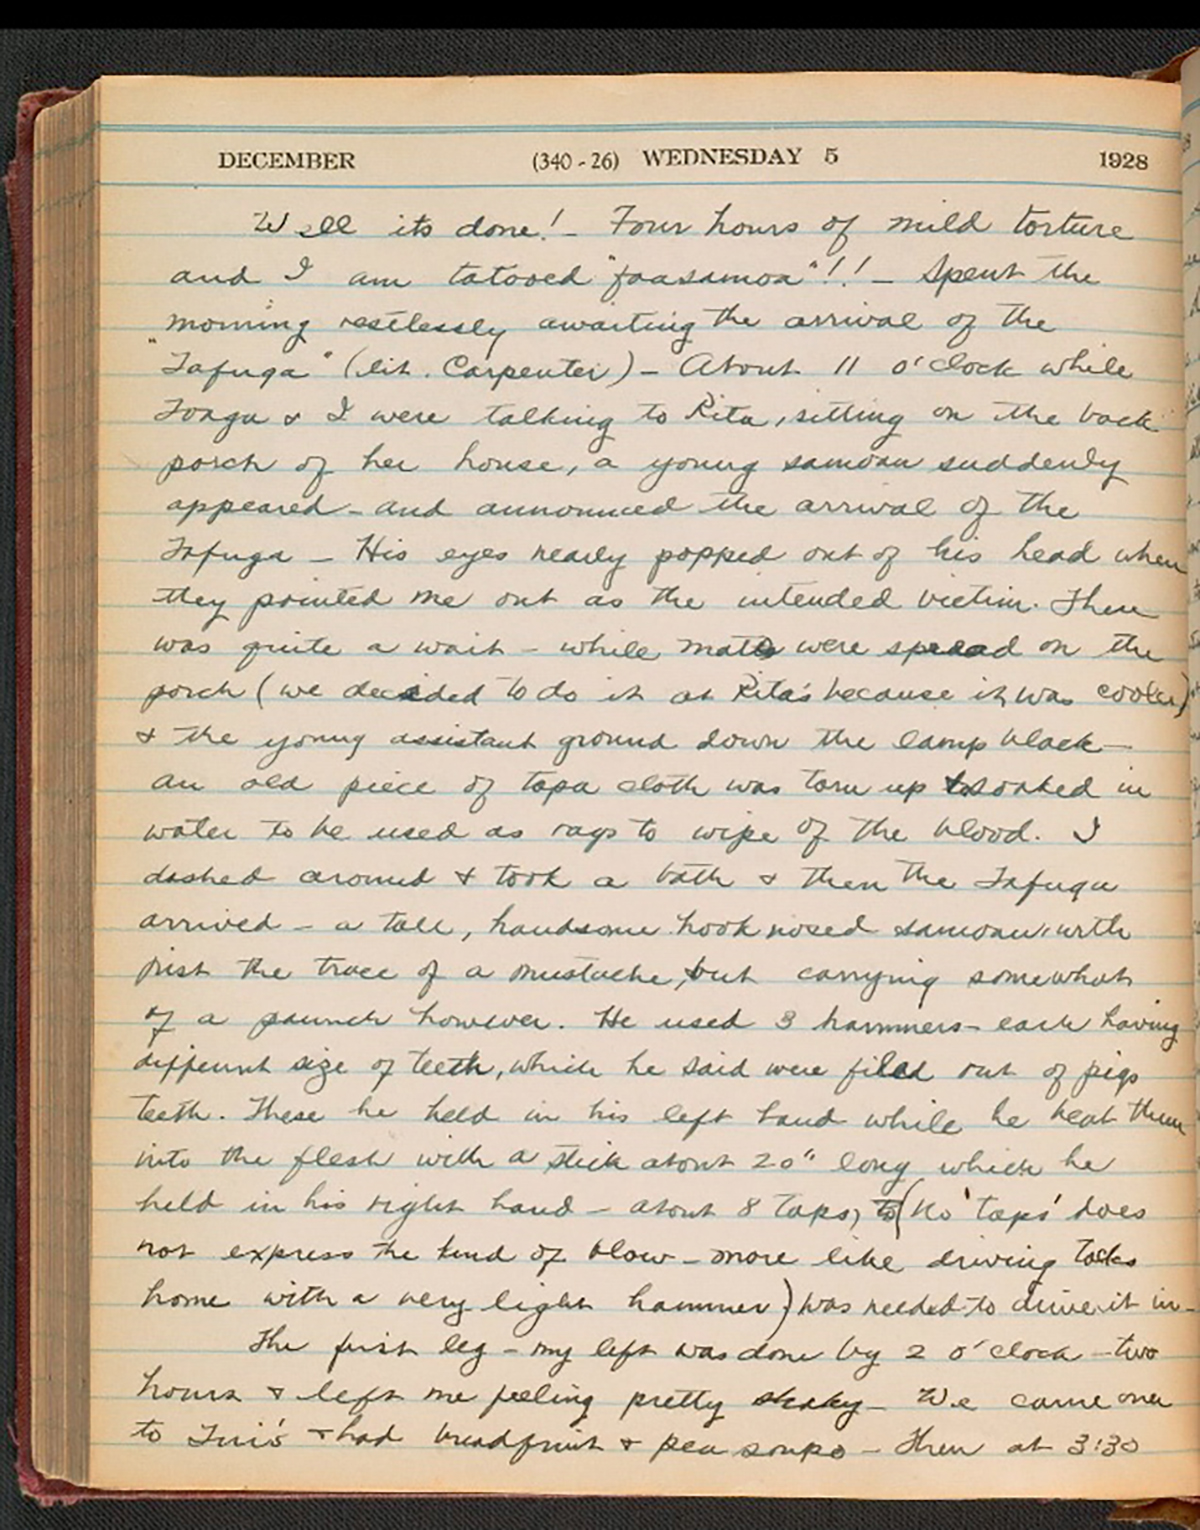 DECEMBER (340-26) WEDNESDAY 5 1928
Well its done! - Four hours of mild torture
and I am tatooed "faasamoa"!! - Spent the
morning restlessly awaiting the arrival of the
"Tafuga" (lit. Carpenter) - About 11 o'clock while
Tonga & I were talking to Rita, sitting on the back
porch of her house, a young samoan suddenly
appeared - and announced the arrival of the
Tafuga - His eyes nearly popped out of his head when
they pointed me out as the intended victim. There
was quite a wait - while mats were spread on the
porch (we decided to do it at Rita's because it was cooler)
& the young assistant ground down the lamp black -
an old piece of tapa cloth was torn up & soaked in
water to be used as rags to wipe of the blood. I
dashed around & took a bath & then the Tafuga
arrived - a tall, handsome hook nosed samoan, with
just the trace of a mustache, but carrying somewhat
of a paunch however. He used 3 hammers - each having
different size of teeth, which he said were filed out of pigs
teeth. These he held in his left hand while he beat them
into the flesh with a stick about 20" long which he
held in his right hand - about 8 taps, to (no 'taps' does
not express the kind of blow - more like driving tacks
home with a very light hammer) was needed to drive it in -
The first leg - my left was done by 2 o'clock - two
hours & left me feeling pretty shaky - We came over
to & had breadfruit & pea soupo - Then at 3:30